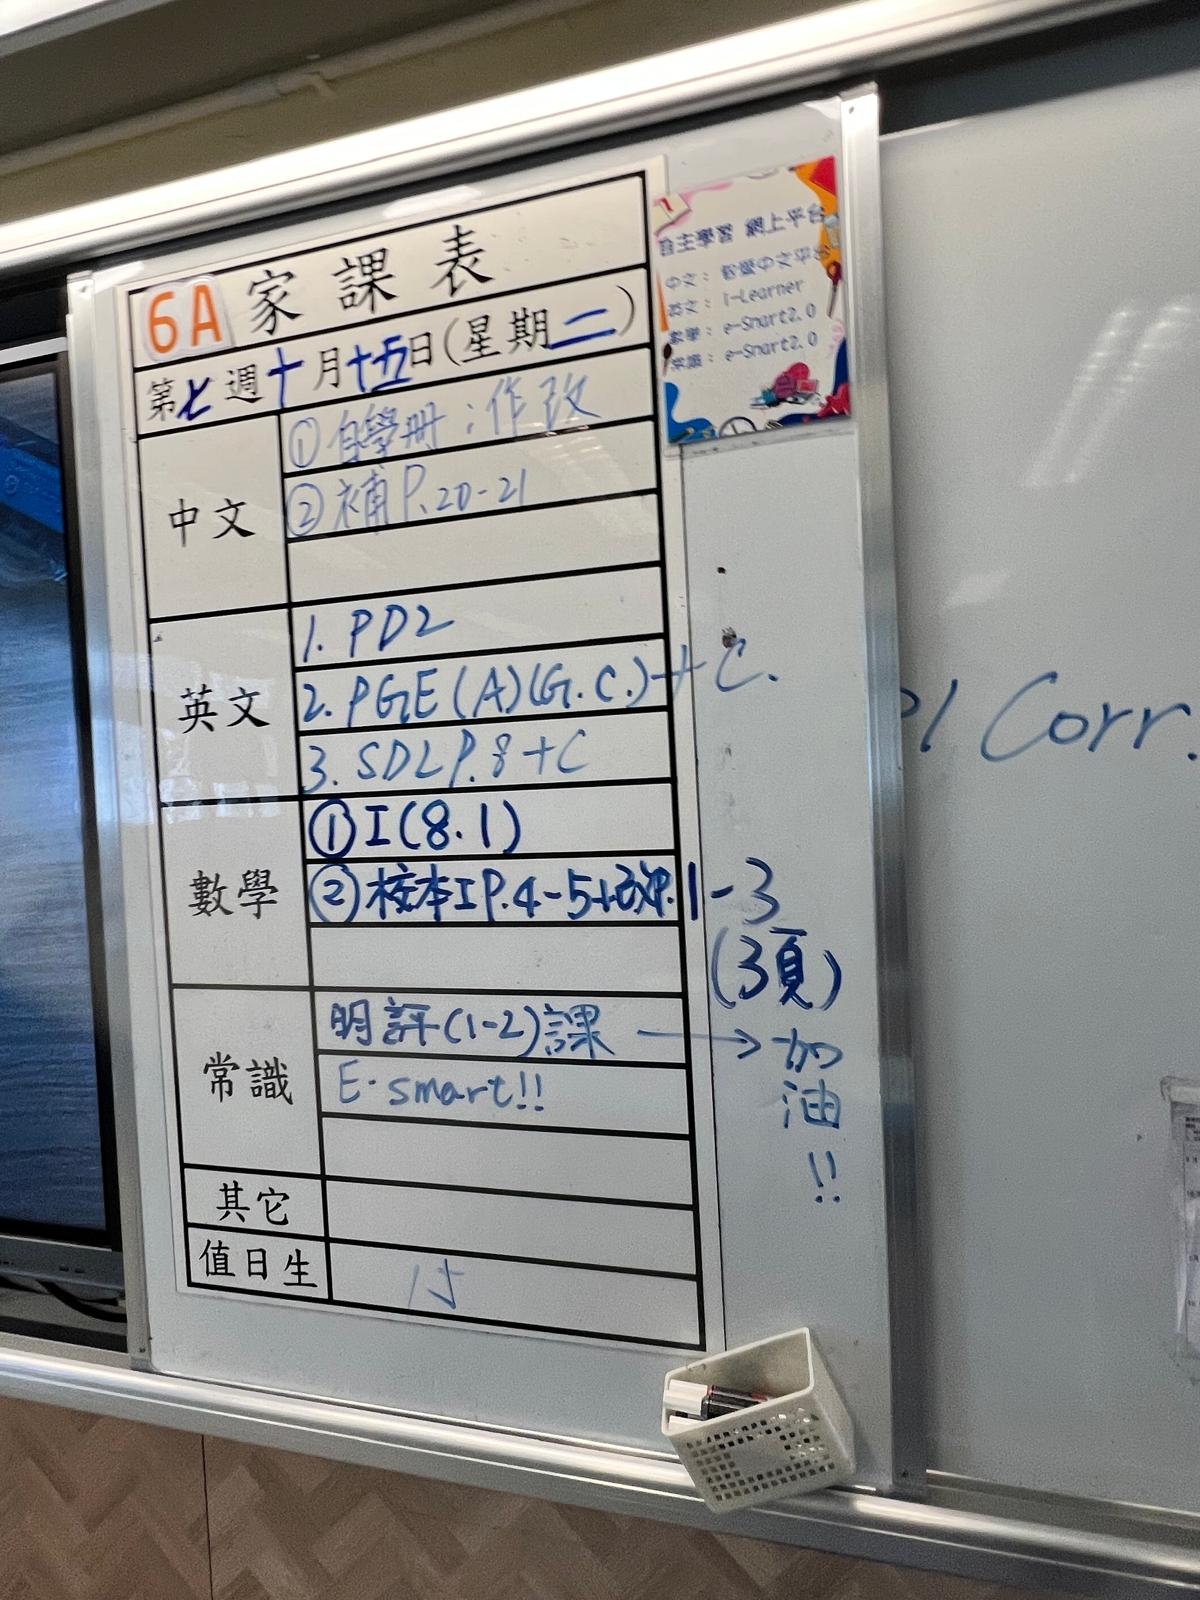 6A 家課表
第七週十月十五日(星期二)
中文
① 自學冊:作改
② 補P.20-21
英文
1. PD2
2. PGE(A)(G.C.)+C.
3. SDL P.8+C
數學
① I(8.1)
② 校本I P.4-5+ P.1-3
(3頁)
常識
明評(1-2)課 → 加油!!
E-smart!!
其它
值日生
15
自主學習 網上平台
中文: 中文平台
英文: I-Learner
數學: e-Smart2.0
常識: e-Smart2.0
Corr.